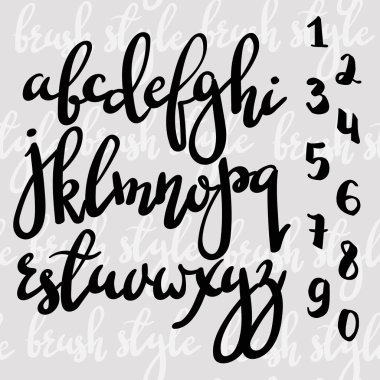 brush style
abcdefghi
jklmnopq
rstuvwxyz
1
2
3
4
5
6
7
8
9
0
brush style